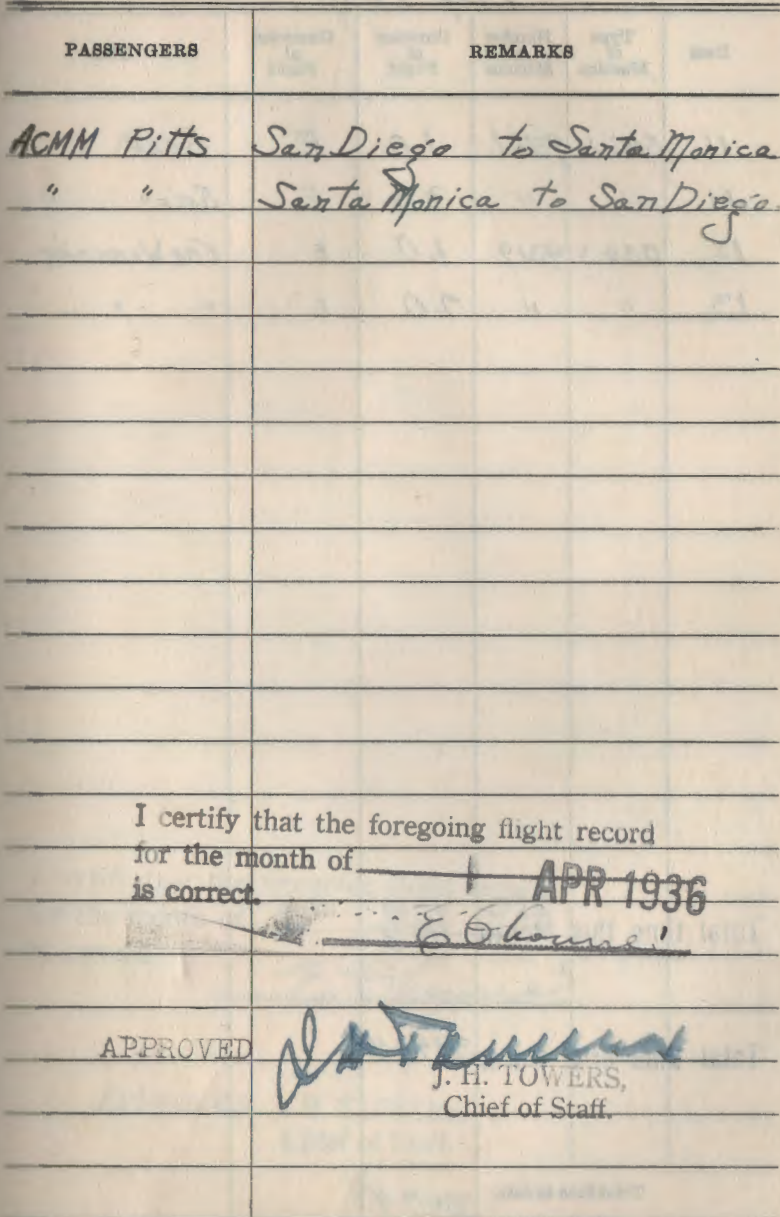 PASSENGERS REMARKS
ACMM Pitts San Diego to Santa Monica
" " Santa Monica to San Diego.
I certify that the foregoing flight record
for the month of APR 1936
is correct.
APPROVED
J. H. TOWERS,
Chief of Staff.